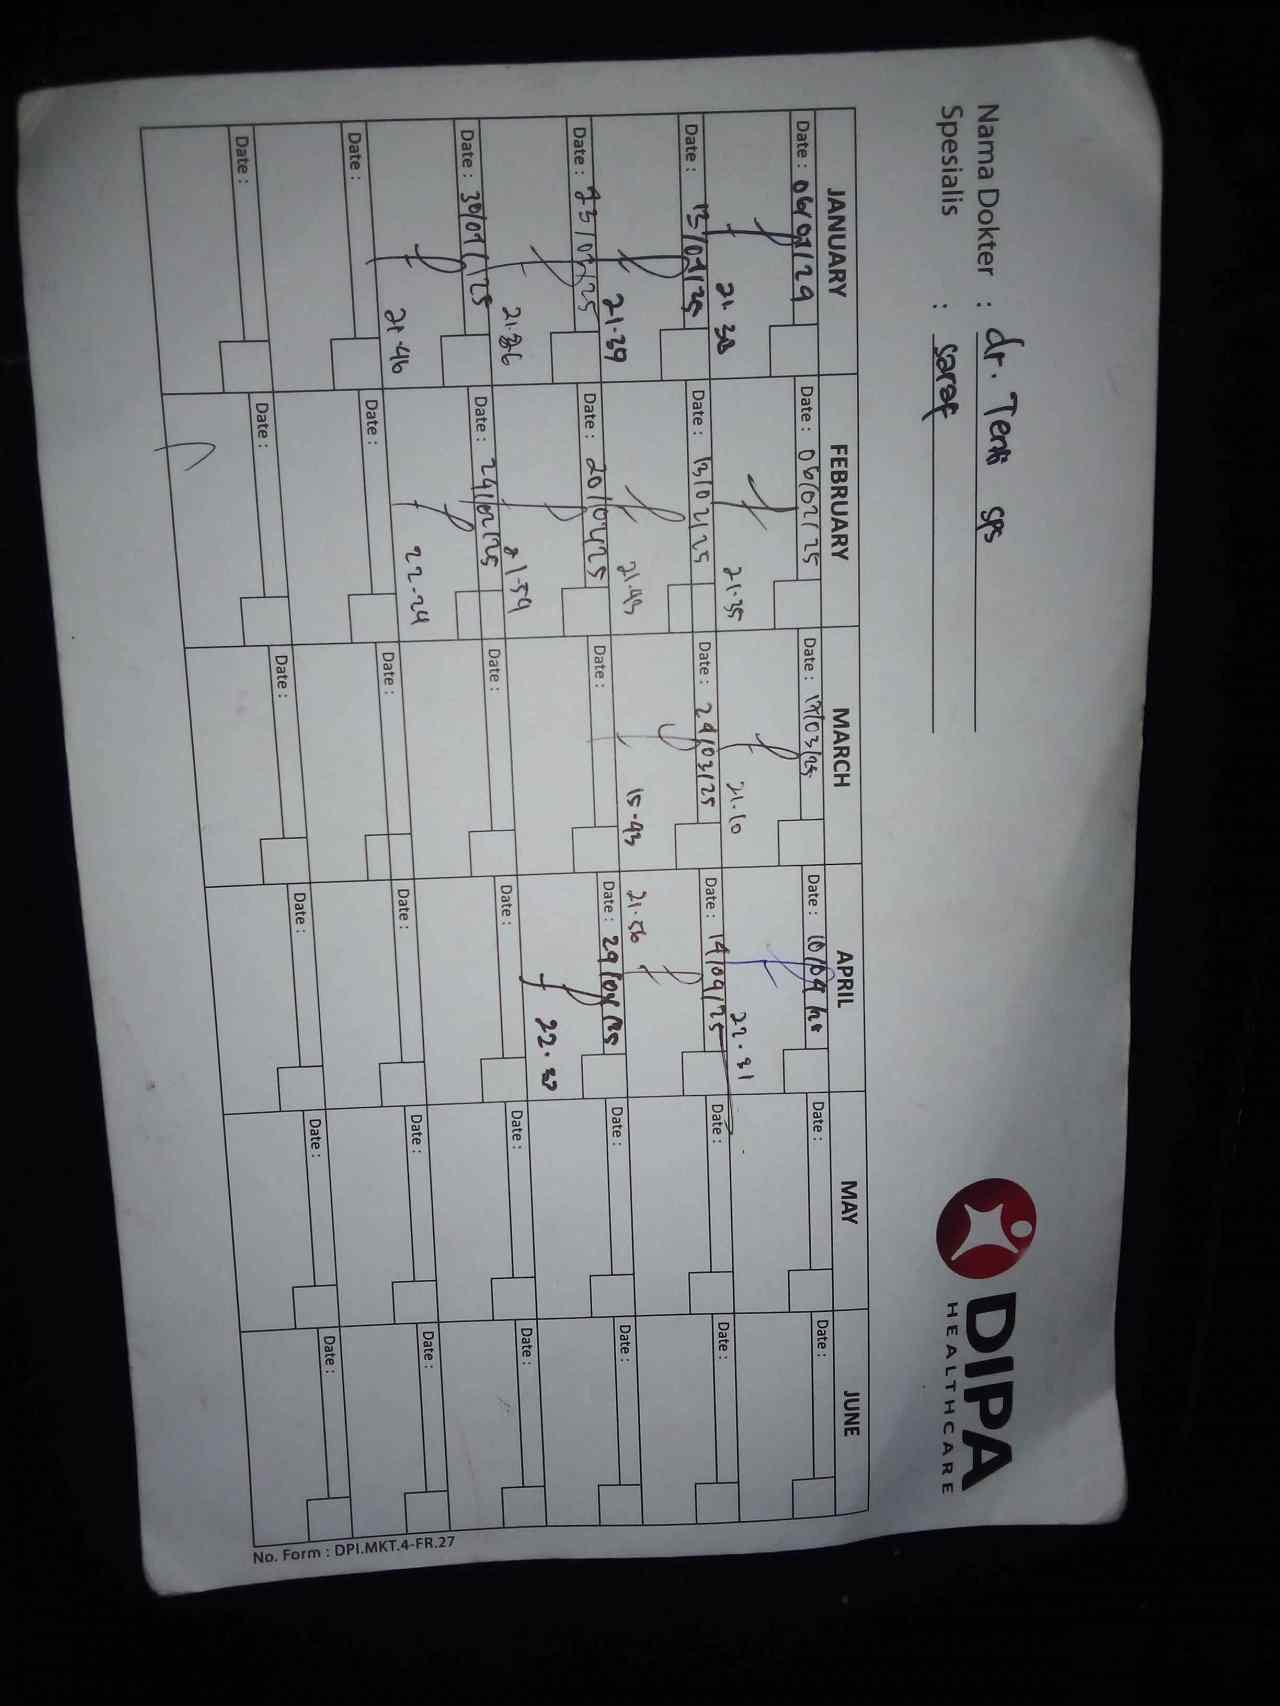 Nama Dokter : dr. Tenti sps
Spesialis : saraf
DIPA
HEALTHCARE
JANUARY FEBRUARY MARCH APRIL MAY JUNE
Date : 06/01/24 Date : 06/02/25 Date : 17/03/25 Date : 10/04 Date : Date :
21.30 21.35 21.10 22.31
Date : 13/01/25 Date : 13/02/25 Date : 24/03/25 Date : 14/04/25 Date : Date :
21.39 21.43 15.43 21.56
Date : 23/01/25 Date : 20/02/25 Date : Date : 29/04/25 Date : Date :
21.36 21.54 22.37
Date : 30/01/25 Date : 24/02/25 Date : Date : Date : Date :
21.46 22.24
Date : Date : Date : Date : Date : Date :
Date : Date : Date : Date : Date : Date :
No. Form : DPI.MKT.4-FR.27